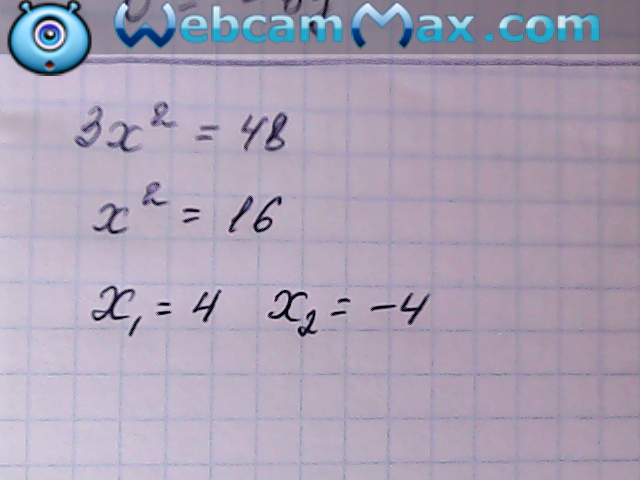 WebcamMax.com
3x² = 48
x² = 16
x₁ = 4 x₂ = -4